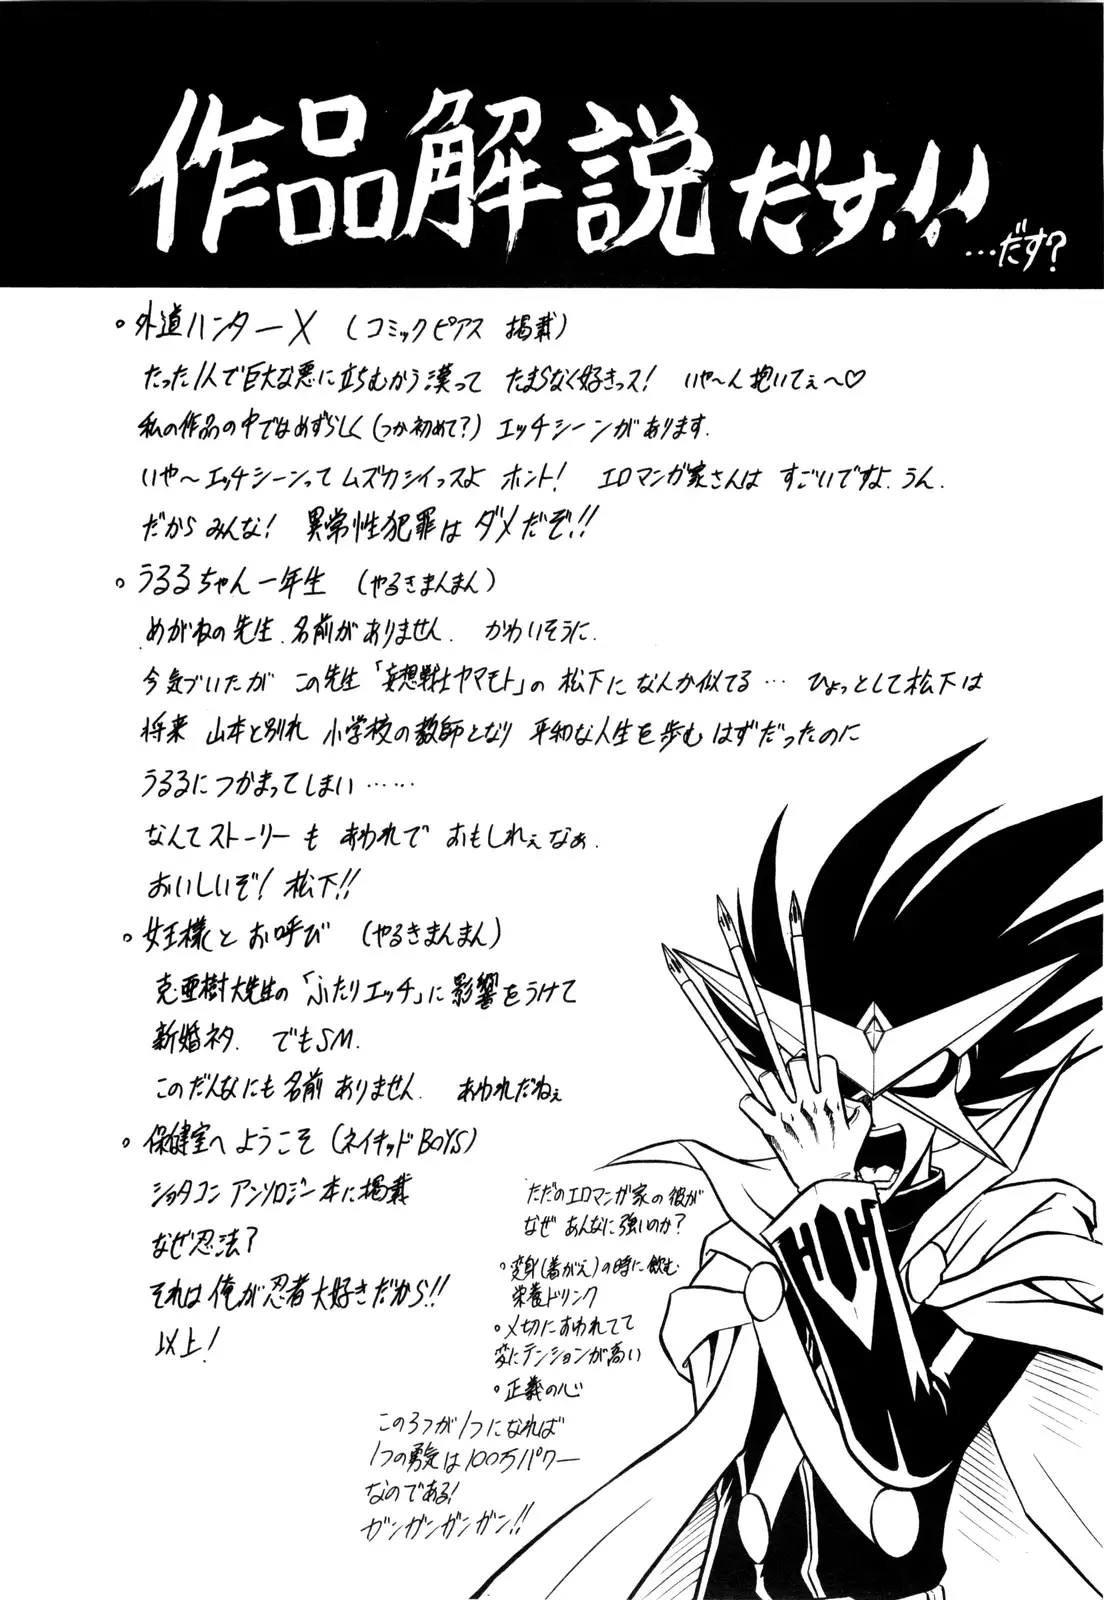 作品解説だす!!
…だす?
。外道ハンターX (コミックピアス 掲載)
たった1人で巨大な悪に立ちむかう漢って たまらなく好きっス! いや～ん抱いてぇ～♡
私の作品の中ではめずらしく(つか初めて?) エッチシーンがあります.
いや～エッチシーンって ムズカシイっスよ ホント! エロマンガ家さんは すごいですよ.うん.
だから みんな! 異常性犯罪は ダメだぞ!!
。うるるちゃん一年生 (やるきまんまん)
めがねの先生.名前がありません. かわいそうに.
今気づいたが この先生「妄想戦士ヤマモト」の 松下になんか似てる… ひょっとして松下は
将来 山本と別れ 小学校の教師となり 平和な人生を歩む はずだったのに
うるるにつかまってしまい……
なんてストーリーも あわれで おもしれぇなぁ.
おいしいぞ! 松下!!
。女王様とお呼び (やるきまんまん)
克・亜樹大先生の「ふたりエッチ」に影響をうけて
新婚ネタ. でもSM.
このだんなにも名前ありません. あわれだねぇ
。保健室へようこそ (ネイキッドBOYS)
ショタコン アンソロジー本に掲載
なぜ忍法?
それは俺が忍者大好きだから!!
以上!
ただのエロマンガ家の彼が
なぜ あんなに強いのか?
。変身(着がえ)の時に飲む
栄養ドリンク
・〆切におわれてて
変にテンションが高い
。正義の心
この3つが1つになれば
1つの勇気は100万パワー
なのである!
ガンガンガンガン!!